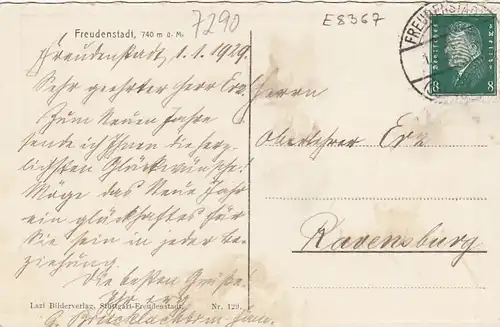 7290
E8367
Freudenstadt, 740 m ü. M.
Freudenstadt, 1.1.1929.
Sehr geehrter Herr Erx.
Zum Neuen Jahre
sende ich Ihnen die herz-
lichsten Glückwünsche!
Möge das Neue Jahr
ein glückhaftes für
Sie sein in jeder Be-
ziehung.
Die besten Grüße!
Ihr erg.
Lazi Bilderverlag, Stuttgart-Freudenstadt. Nr. 129.
FREUDENSTADT
8 8
Herrn
Oberlehrer
Ravensburg